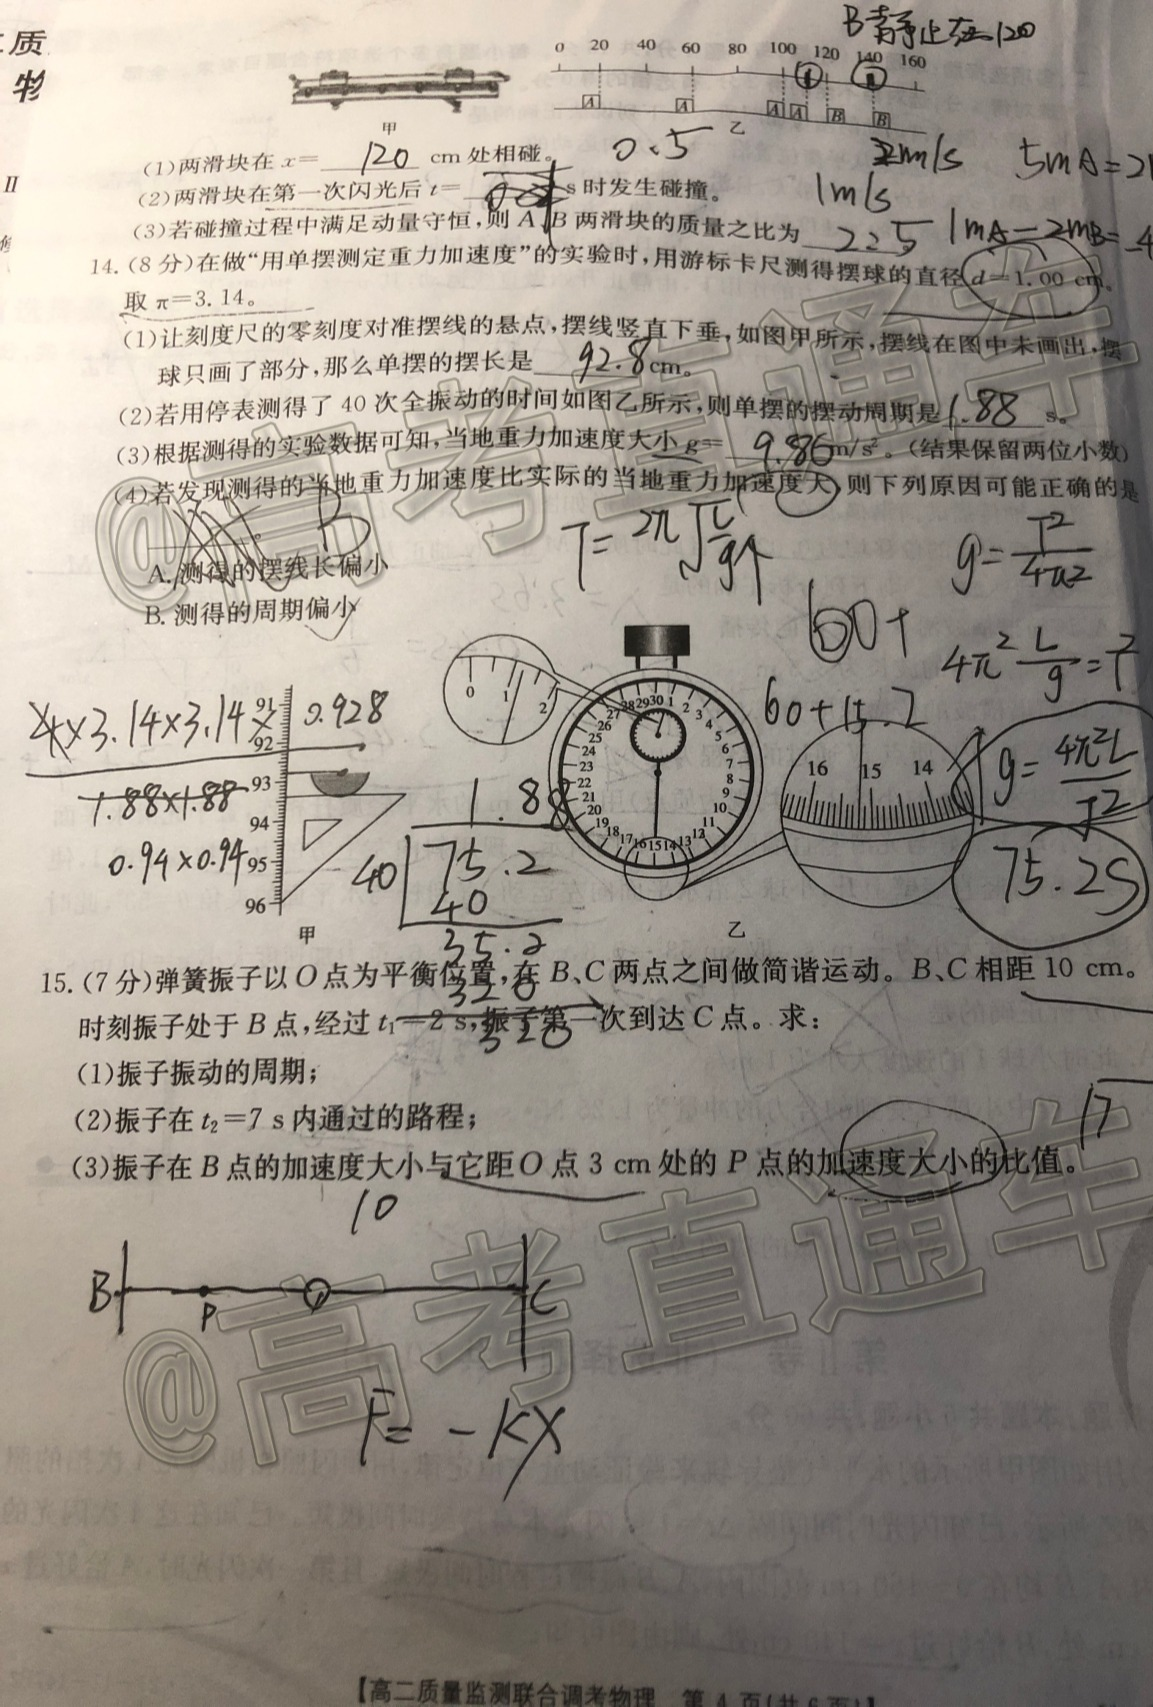 质
物
II
B静止在120
0 20 40 60 80 100 120 140 160
A A A A B B
甲
乙
(1)两滑块在 x= 120 cm 处相碰。
0.5
2m/s
1m/s
(2)两滑块在第一次闪光后 t= s 时发生碰撞。
(3)若碰撞过程中满足动量守恒,则 A、B 两滑块的质量之比为 2:5
1mA-2mB=-4
14.(8 分)在做“用单摆测定重力加速度”的实验时,用游标卡尺测得摆球的直径 d=1.00 cm。
取 π=3.14。
(1)让刻度尺的零刻度对准摆线的悬点,摆线竖直下垂,如图甲所示,摆线在图中未画出,摆
球只画了部分,那么单摆的摆长是 92.8 cm。
(2)若用停表测得了 40 次全振动的时间如图乙所示,则单摆的摆动周期是 1.88 s。
(3)根据测得的实验数据可知,当地重力加速度大小 g= 9.86 m/s²。(结果保留两位小数)
(4)若发现测得的当地重力加速度比实际的当地重力加速度大,则下列原因可能正确的是
B
A.测得的摆线长偏小
B.测得的周期偏小
g=T²/4π²
60+
4π² L/g=T²
60+15.2
g=4π²L/T²
75.2s
4×3.14×3.14× 0.928
1.88×1.88
0.94×0.94
91
92
93
94
95
96
甲
1.88
40 75.2
40
35.2
320
320
0 1 2
28 29 30 1 2 3 4 5 6 7 8 9 10 11 12 13 14 15 16 17 18 19 20 21 22 23 24 25 26 27
16 15 14
乙
15.(7 分)弹簧振子以 O 点为平衡位置,在 B、C 两点之间做简谐运动。B、C 相距 10 cm。
时刻振子处于 B 点,经过 t₁=2 s,振子第一次到达 C 点。求:
(1)振子振动的周期;
(2)振子在 t₂=7 s 内通过的路程;
(3)振子在 B 点的加速度大小与它距 O 点 3 cm 处的 P 点的加速度大小的比值。
10
B P C
F=-kx
@高考直通车
@高考直通车
【高二质量监测联合调考物理 第 4 页(共 6 页)】